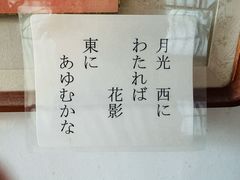 月光　西に
わたれば
花影
東に
あゆむかな